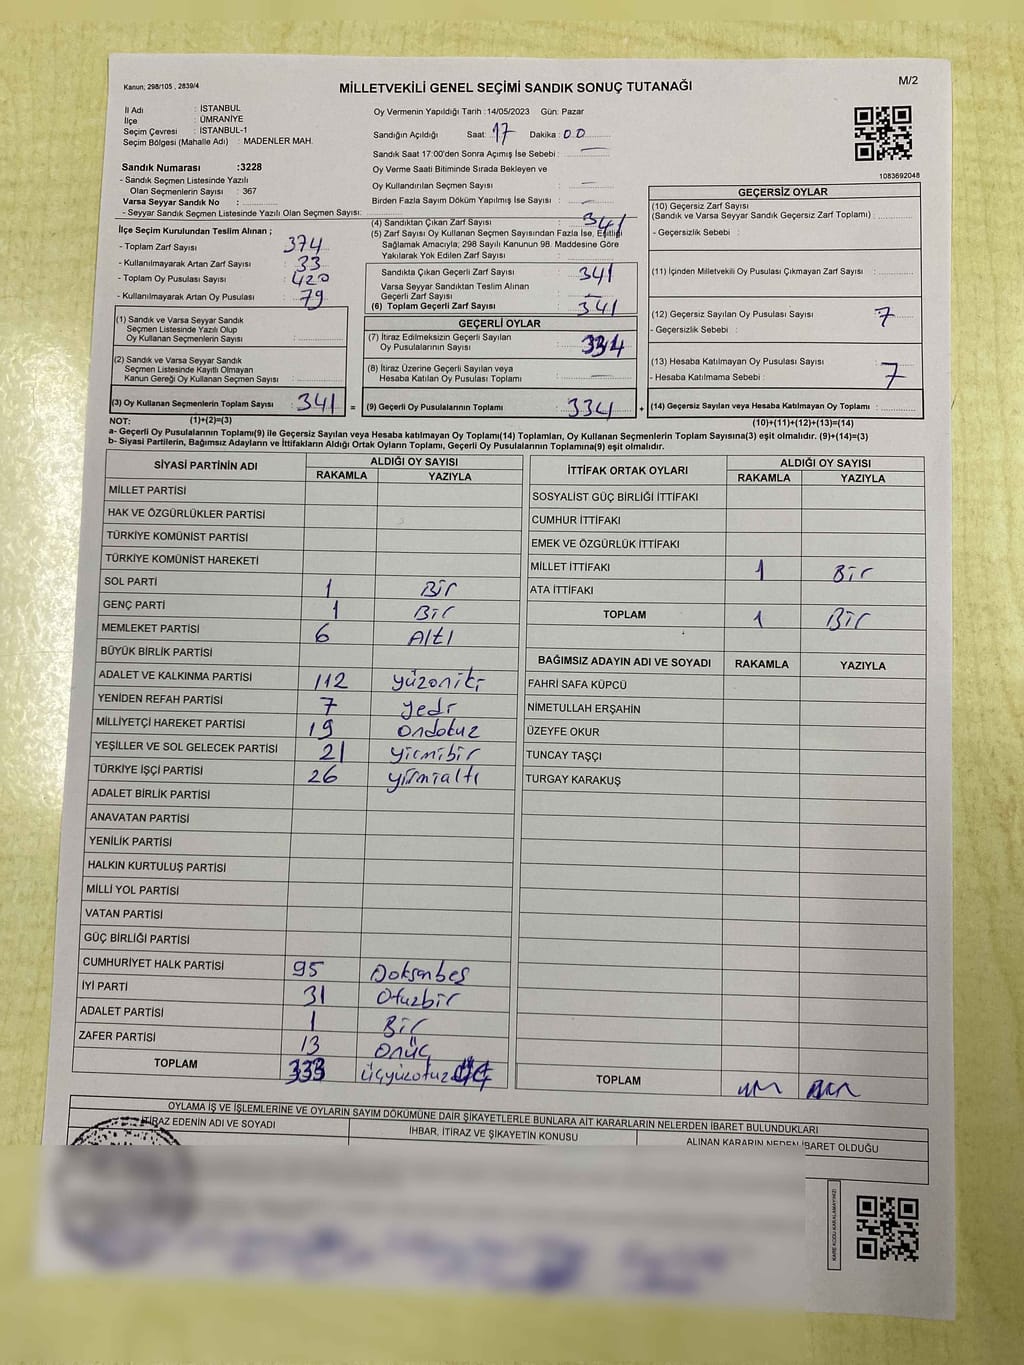 Kanun; 298/105 , 2839/4
MİLLETVEKİLİ GENEL SEÇİMİ SANDIK SONUÇ TUTANAĞI
M/2
İl Adı : İSTANBUL
İlçe : ÜMRANİYE
Seçim Çevresi : İSTANBUL-1
Seçim Bölgesi (Mahalle Adı) : MADENLER MAH.
Sandık Numarası :3228
- Sandık Seçmen Listesinde Yazılı
Olan Seçmenlerin Sayısı : 367
Varsa Seyyar Sandık No :
- Seyyar Sandık Seçmen Listesinde Yazılı Olan Seçmen Sayısı:
Oy Vermenin Yapıldığı Tarih :14/05/2023 Gün: Pazar
Sandığın Açıldığı Saat: 17 Dakika : 00
Sandık Saat 17:00'den Sonra Açımış İse Sebebi : —
Oy Verme Saati Bitiminde Sırada Bekleyen ve
Oy Kullandırılan Seçmen Sayısı : —
Birden Fazla Sayım Döküm Yapılmış İse Sayısı : —
1083692048
İlçe Seçim Kurulundan Teslim Alınan ;
- Toplam Zarf Sayısı : 374
- Kullanılmayarak Artan Zarf Sayısı : 33
- Toplam Oy Pusulası Sayısı : 420
- Kullanılmayarak Artan Oy Pusulası : 79
(1) Sandık ve Varsa Seyyar Sandık
Seçmen Listesinde Yazılı Olup
Oy Kullanan Seçmenlerin Sayısı :
(2) Sandık ve Varsa Seyyar Sandık
Seçmen Listesinde Kayıtlı Olmayan
Kanun Gereği Oy Kullanan Seçmen Sayısı :
(3) Oy Kullanan Seçmenlerin Toplam Sayısı : 341
(4) Sandıktan Çıkan Zarf Sayısı : 341
(5) Zarf Sayısı Oy Kullanan Seçmen Sayısından Fazla İse, Eşitliği
Sağlamak Amacıyla; 298 Sayılı Kanunun 98. Maddesine Göre
Yakılarak Yok Edilen Zarf Sayısı :
Sandıkta Çıkan Geçerli Zarf Sayısı : 341
Varsa Seyyar Sandıktan Teslim Alınan
Geçerli Zarf Sayısı : —
(6) Toplam Geçerli Zarf Sayısı : 341
GEÇERLİ OYLAR
(7) İtiraz Edilmeksizin Geçerli Sayılan
Oy Pusulalarının Sayısı : 334
(8) İtiraz Üzerine Geçerli Sayılan veya
Hesaba Katılan Oy Pusulası Toplamı : —
= (9) Geçerli Oy Pusulalarının Toplamı : 334 +
GEÇERSİZ OYLAR
(10) Geçersiz Zarf Sayısı
(Sandık ve Varsa Seyyar Sandık Geçersiz Zarf Toplamı) :
- Geçersizlik Sebebi :
(11) İçinden Milletvekili Oy Pusulası Çıkmayan Zarf Sayısı :
(12) Geçersiz Sayılan Oy Pusulası Sayısı : 7
- Geçersizlik Sebebi :
(13) Hesaba Katılmayan Oy Pusulası Sayısı :
- Hesaba Katılmama Sebebi : 7
(14) Geçersiz Sayılan veya Hesaba Katılmayan Oy Toplamı :
NOT: (1)+(2)=(3)
(10)+(11)+(12)+(13)=(14)
a- Geçerli Oy Pusulalarının Toplamı(9) ile Geçersiz Sayılan veya Hesaba katılmayan Oy Toplamı(14) Toplamları, Oy Kullanan Seçmenlerin Toplam Sayısına(3) eşit olmalıdır. (9)+(14)=(3)
b- Siyasi Partilerin, Bağımsız Adayların ve İttifakların Aldığı Ortak Oyların Toplamı, Geçerli Oy Pusulalarının Toplamına(9) eşit olmalıdır.
SİYASİ PARTİNİN ADI ALDIĞI OY SAYISI
RAKAMLA YAZIYLA
MİLLET PARTİSİ
HAK VE ÖZGÜRLÜKLER PARTİSİ
TÜRKİYE KOMÜNİST PARTİSİ
TÜRKİYE KOMÜNİST HAREKETİ
SOL PARTİ 1 Bir
GENÇ PARTİ 1 Bir
MEMLEKET PARTİSİ 6 Altı
BÜYÜK BİRLİK PARTİSİ
ADALET VE KALKINMA PARTİSİ 112 yüzoniki
YENİDEN REFAH PARTİSİ 7 yedi
MİLLİYETÇİ HAREKET PARTİSİ 19 ondokuz
YEŞİLLER VE SOL GELECEK PARTİSİ 21 yirmibir
TÜRKİYE İŞÇİ PARTİSİ 26 yirmialtı
ADALET BİRLİK PARTİSİ
ANAVATAN PARTİSİ
YENİLİK PARTİSİ
HALKIN KURTULUŞ PARTİSİ
MİLLİ YOL PARTİSİ
VATAN PARTİSİ
GÜÇ BİRLİĞİ PARTİSİ
CUMHURİYET HALK PARTİSİ 95 Doksanbeş
İYİ PARTİ 31 Otuzbir
ADALET PARTİSİ 1 Bir
ZAFER PARTİSİ 13 onüç
TOPLAM 333 üçyüzotuzüç
İTTİFAK ORTAK OYLARI ALDIĞI OY SAYISI
RAKAMLA YAZIYLA
SOSYALİST GÜÇ BİRLİĞİ İTTİFAKI
CUMHUR İTTİFAKI
EMEK VE ÖZGÜRLÜK İTTİFAKI
MİLLET İTTİFAKI 1 Bir
ATA İTTİFAKI
TOPLAM 1 Bir
BAĞIMSIZ ADAYIN ADI VE SOYADI RAKAMLA YAZIYLA
FAHRİ SAFA KÜPCÜ
NİMETULLAH ERŞAHİN
ÜZEYFE OKUR
TUNCAY TAŞÇI
TURGAY KARAKUŞ
TOPLAM
OYLAMA İŞ VE İŞLEMLERİNE VE OYLARIN SAYIM DÖKÜMÜNE DAİR ŞİKAYETLERLE BUNLARA AİT KARARLARIN NELERDEN İBARET BULUNDUKLARI
İTİRAZ EDENİN ADI VE SOYADI İHBAR, İTİRAZ VE ŞİKAYETİN KONUSU ALINAN KARARIN NEDEN İBARET OLDUĞU
KARE KODU KARALAMAYINIZ!